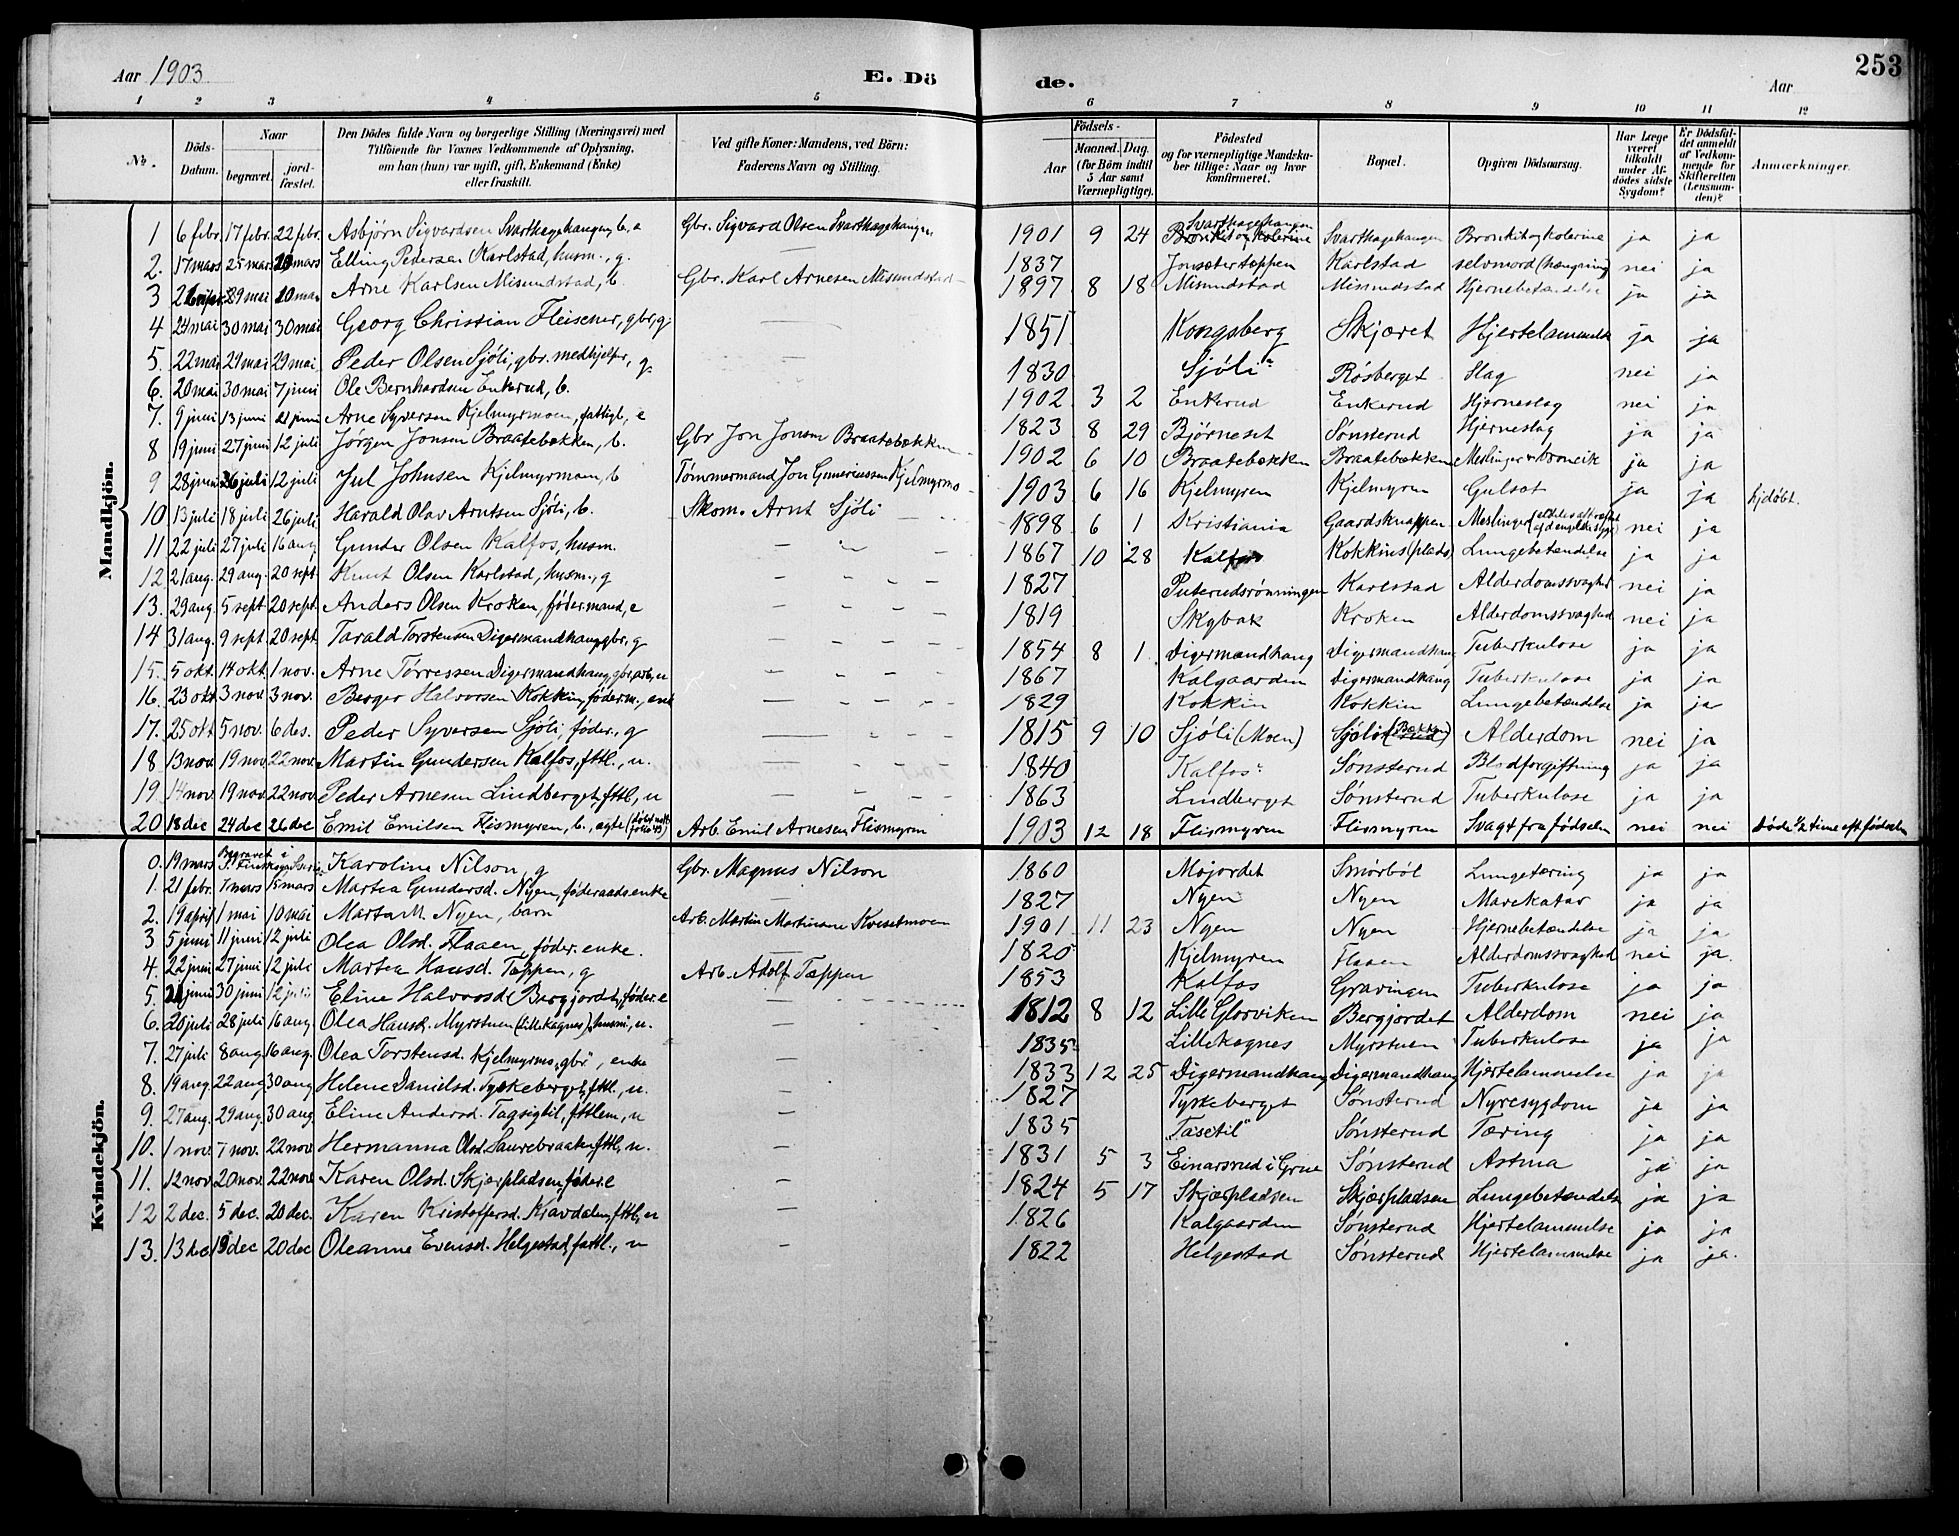 Aar 1903. E. Dö de. Aar 253
1 2 3 4 5 6 7 8 9 10 11 12
No. Döds-Datum. Naar begravet. jordfæstet. Den Dödes fulde Navn og borgerlige Stilling (Næringsvei) med Tilföiende for Voxnes Vedkommende af Oplysning, om han (hun) var ugift, gift, Enkemand (Enke) eller fraskilt. Ved gifte Koner: Mandens, ved Börn: Faderens Navn og Stilling. Födsels- Aar Maaned. Dag. (for Börn indtil 5 Aar samt Værnepligtige). Födested og for værnepligtige Mandskaber tillige: Naar og hvor konfirmeret. Bopæl. Opgiven Dödsaarsag. Har Læge været tilkaldt under Afdödes sidste Sygdom? Er Dödsfaldet anmeldt af Vedkommende for Skifteretten (Lensmanden)? Anmærkninger.
Mandkjön.
1 6 febr. 17 febr. 22 febr. Asbjörn Sigvardsen Svarthagehaugen, b. e Gbr. Sigvard Olsen Svarthagehaugen. 1901 9 24 Svarthagehaugen Svarthagehaugen Bronkit og kolerine ja ja
2. 17 mars 25 mars mars Elling Pedersen Karlstad, husm., g. — 1837 Jonsætertoppen Karlstad selvmord (hængning) nei ja
3 29 mai 10 mai Arne Karlsen Misundstad, b. Gbr. Karl Arnesen Misundstad 1897 8 18 Misundstad Misundstad Hjernebetændelse ja ja
4 24 mai 30 mai 30 mai Georg Christian Fleischer, gbr, g. — 1851 Kongsberg Skjæret Hjertelammelse ja ja
5. 22 mai 29 mai 29 mai Peder Olsen Sjöli, gbr. medhjelper, g. — 1830 Sjöli Rösberget Slag nei ja
6. 20 mai 30 mai 7 juni Ole Bernhardsen Enkerud, b. 1902 3 2 Enkerud Enkerud Hjerneslag nei ja
7. 9 juni 13 juni 21 juni Arne Syversen Kjelmyrmoen, fattigl., e 1823 8 29 Björneset Sönsterud Hjerneslag ja ja
8 19 juni 27 juni 12 juli Jörgen Jonsen Braatebækken, b. Gbr Jon Jonsen Braatebækken 1902 6 10 Braatebækken Braatebækken Meslinger ja ja
9 28 juni 26 juli 12 juli Jul Johnsen Kjelmyrmoen, b Tömmermand Jon Gunneriussen Kjelmyrmo 1903 6 16 Kjelmyren Kjelmyren Gulsot ja ja hjdöbt.
10 13 juli 18 juli 26 juli Harald Olav Arntsen Sjöli, b. Skom. Arnt Sjöli 1898 6 1 Kristiania Gaardsknappen Meslinger nei ja
11 22 juli 27 juli 16 aug Gunder Olsen Kalfos, husm. — — — 1867 10 28 Kalfos Kokkins (plads) Lungebetændelse ja ja
12 21 aug. 29 aug. 20 sept. Knut Olsen Karlstad, husm., g — — — — 1827 Puterudsrönningen Karlstad Alderdomssvaghed nei ja
13. 29 aug. 5 sept. 20 sept. Anders Olsen Kroken, födermand, e — — — — 1819 Skybak Kroken Alderdomssvaghed nei ja
14 31 aug. 9 sept. 20 sept. Tarald Torstensen Digermandhaug gbr, g — — — — 1854 8 1 Digermandhaug Digermandhaug Tuberkulose ja ja
15. 5 okt. 14 okt. 1 nov. Arne Törressen Digermandhaug, gbr, arb, u — — — — 1867 Kalgaarden Digermandhaug Tuberkulose ja ja
16. 23 okt 3 nov 3 nov. Berger Halvorsen Kokkin, föderm., enk — — — — 1829 Kokkin Kokkin Lungebetændelse ja ja
17. 25 okt 5 nov. 6 des. Peder Syversen Sjöli, föder., g — — — — 1815 9 10 Sjöli (Moen) Sjöli (Bækken) Alderdom nei ja
18 13 nov. 19 nov. 22 nov. Martin Gundersen Kalfos, fttl., u. — — — 1840 Kalfos Sönsterud Blodforgiftning ja ja
19. 14 nov. 19 nov. 22 nov. Peder Arnesen Lindberget, fttl, u — — — — 1863 Lindberget Sönsterud Tuberkulose ja ja
20 18 dec 24 dec 26 dec Emil Emilsen Flismyren, b., ægte Arb. Emil Arnesen Flismyren 1903 12 18 Flismyren Flismyren Svagt fra födselen nei nei Döde ½ time eft. födselen
Kvindekjön.
0. 19 mars Begravet i Karoline Nilson, g Gbr. Magnus Nilson 1860 Mojordet Smörböl Lungetæring ja ja
1. 21 febr. 7 mars 15 mars Martea Gundersd. Nyen, föderaads enke — 1827 Nyen Nyen Mavekatar ja ja
2. 19 april 1 mai 10 mai Marta M. Nyen, barn Arb. Martin Martinsen Kvesetmoen 1901 11 23 Nyen Nyen Hjernebetændelse ja ja
3 5 juni 11 juni 12 juli Olea Olsd. Flaaen, föder. enke. — 1820 Kjelmyren Flaaen Alderdomssvaghed nei ja
4. 22 juni 27 juni 12 juli Martea Hansd. Tappen, g Arb. Adolf Tappen 1853 Kalfos Gravingen Tuberkulose ja ja
5. juni 30 juni 12 juli Eline Halvorsd. Bergjordet, föder. e — — 1812 8 12 Lille Glorviken Bergjordet Alderdom nei ja
6. 20 juli 28 juli 16 aug. Olea Hansd. Myrstuen (Lillekagnes), husm., u. — 1835 Lillekagnes Myrstuen Tuberkulose ja ja
7. 27 juli 8 aug 16 aug. Olea Torstensd. Kjelmyrmo, gbr, enke — 1833 12 25 Digermandhaug Digermandhaug Hjertelammelse ja ja
8. 19 aug 22 aug 30 aug Helene Danielsd. Tyskeberget, fttl., u. — 1827 Tyskeberget Sönsterud Nyresygdom ja ja
9. 27 aug. 29 aug. 30 aug. Eline Andersd. Tagsigtil, fttlem, u — 1835 "Tasetil" Sönsterud Tæring ja ja
10. 1 nov. 7 nov. 22 nov. Hermanna Olsd. Saurebraaten, fttl., u. — 1831 5 3 Einarsrud i Grue Sönsterud Astma ja ja
11. 12 nov. 20 nov. 22 nov. Karen Olsd. Skjærpladsen, föder. e — 1824 5 17 Skjærpladsen Skjærpladsen Lungebetændelse ja ja
12 2 dec. 5 dec. 20 dec. Karen Kristoffersd. Kjavdalen, fttl., u — 1826 Kalgaarden Sönsterud Hjertelammelse ja ja
13. 13 dec 19 dec 20 dec Oleanne Evensd. Helgestad, fattl., u — 1822 Helgestad Sönsterud Hjertelammelse ja ja.